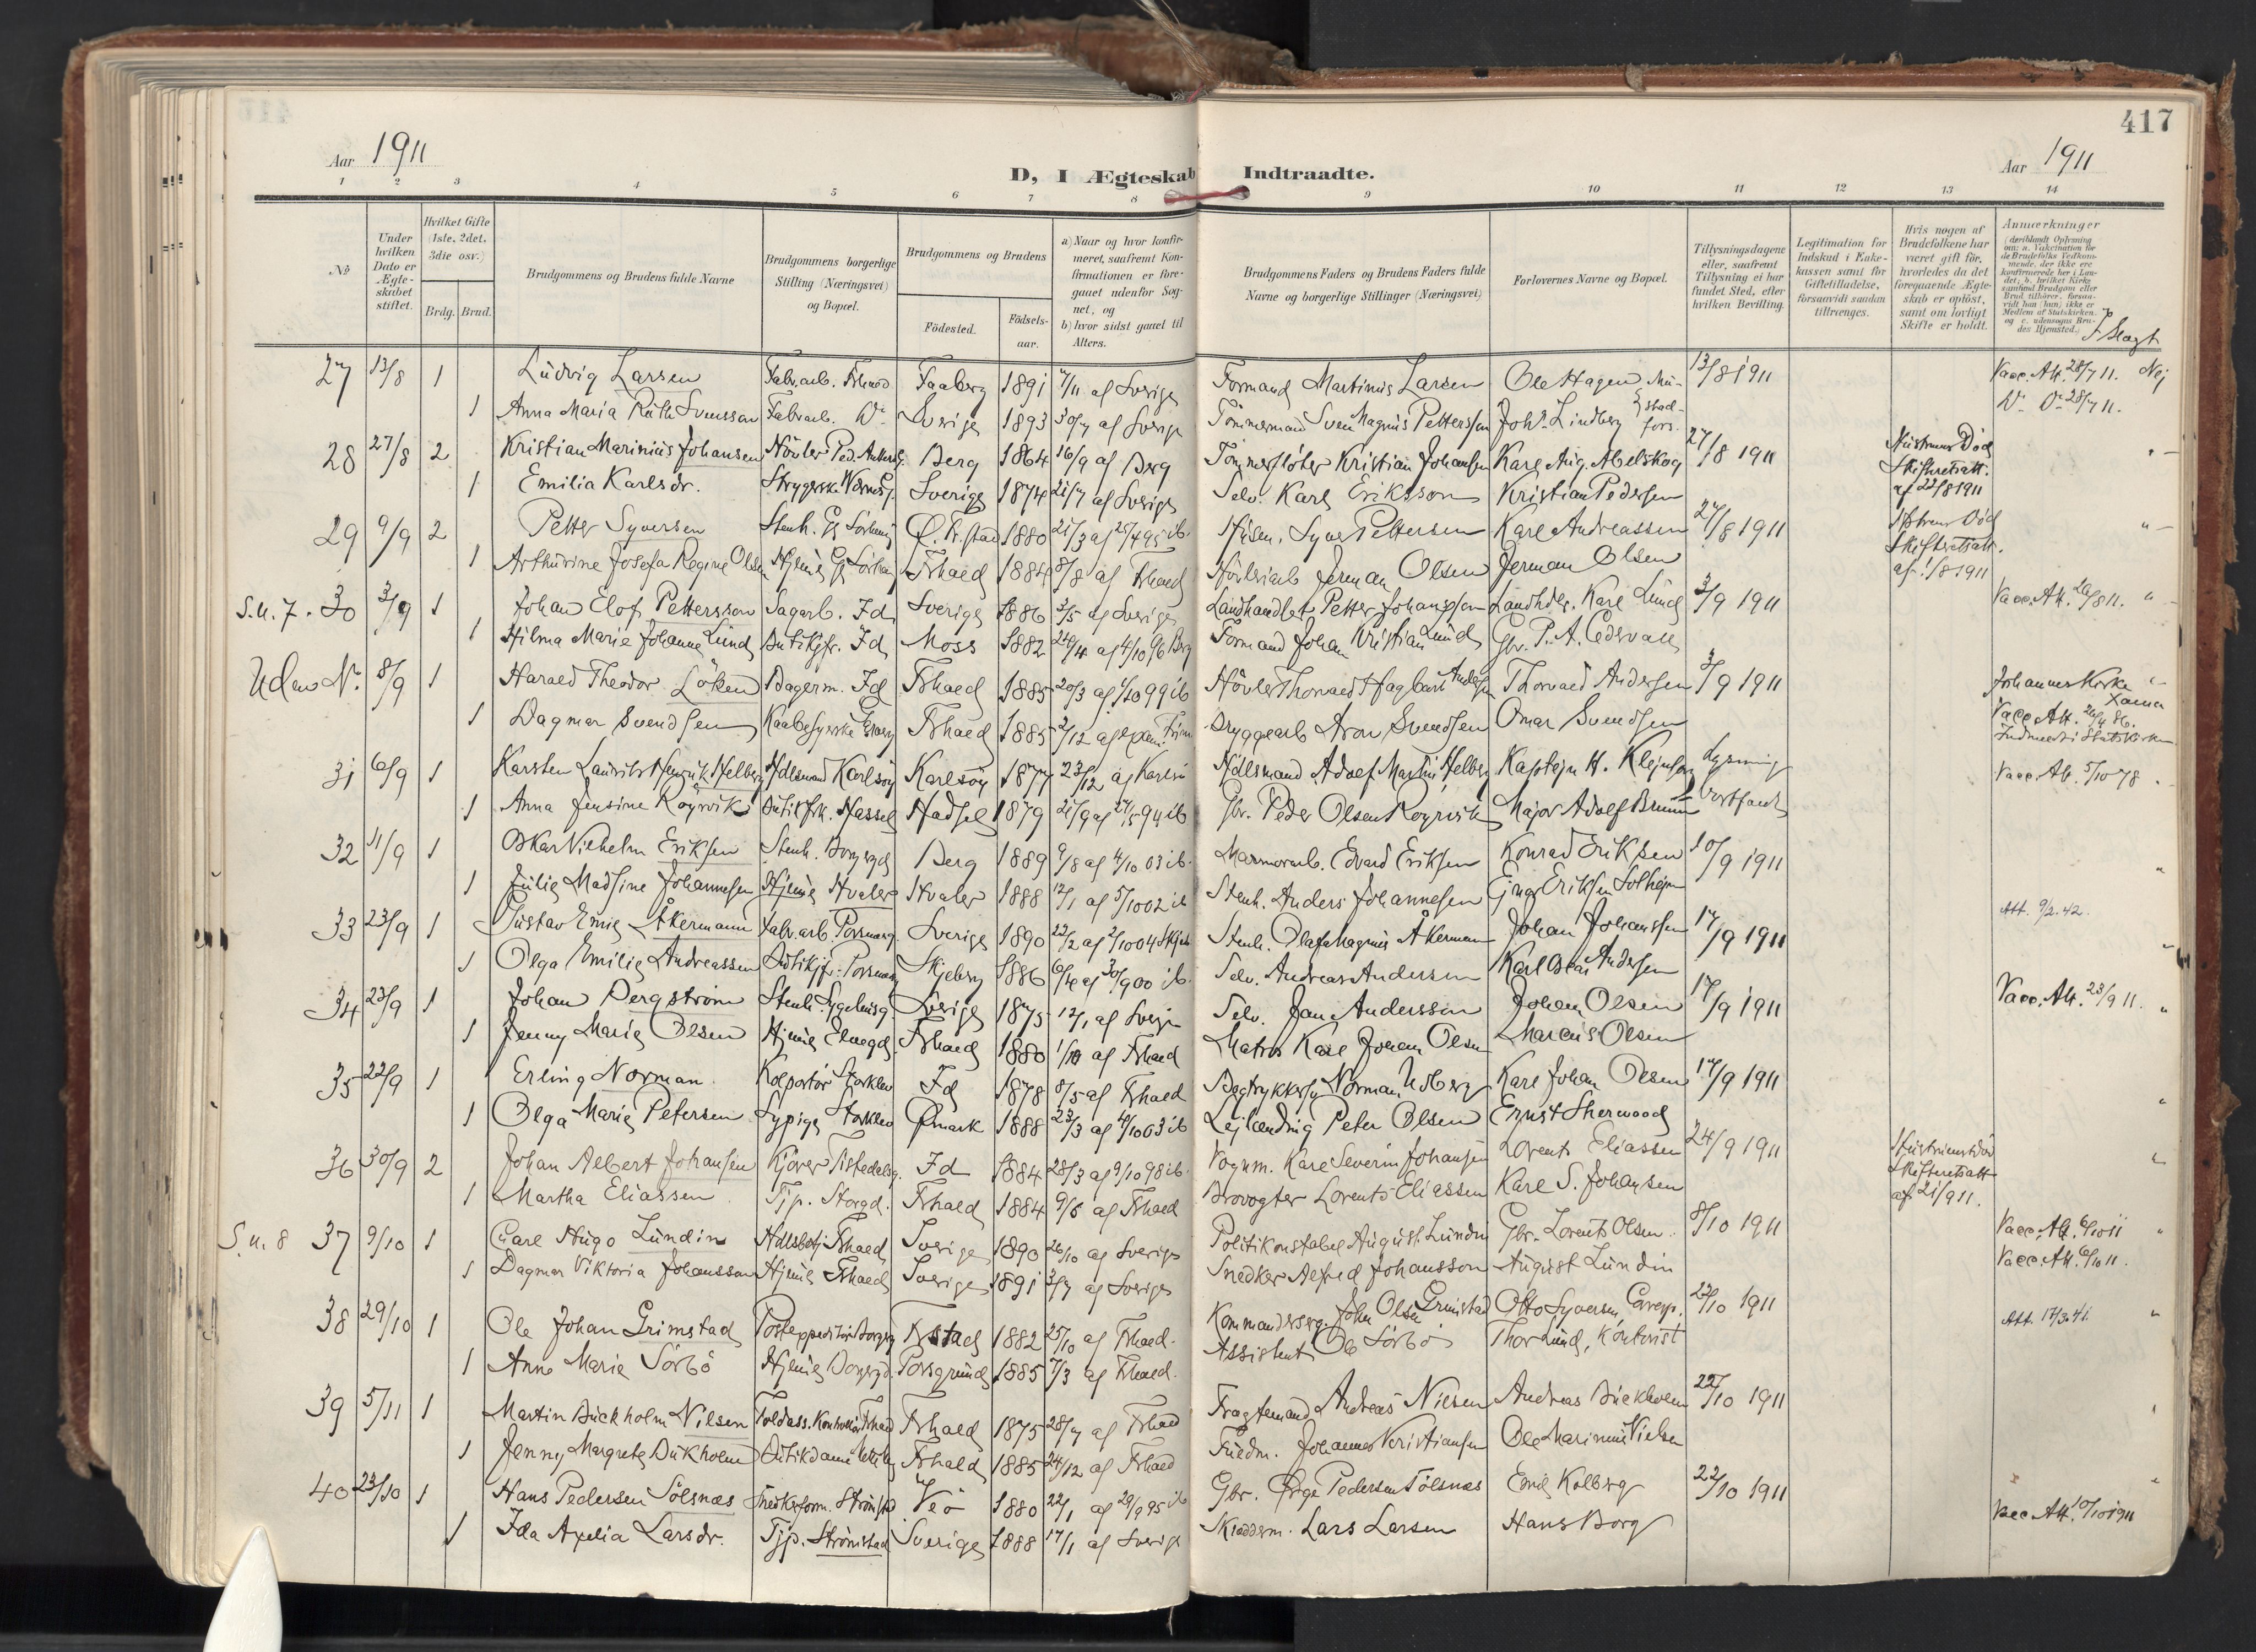 417
Aar 1911
Aar 1911
D, I Ægteskab Indtraadte.
1 2 3 4 5 6 7 8 9 10 11 12 13 14
No
Under hvilken Dato er Ægteskabet stiftet.
Hvilket Gifte (1ste, 2det, 3die osv.)
Brdg. Brud.
Brudgommens og Brudens fulde Navne
Brudgommens borgerlige Stilling (Næringsvei) og Bopæl.
Brudgommens og Brudens
Födested.
Födselsaar.
a) Naar og hvor konfirmeret, saafremt Konfirmationen er foregaaet udenfor Sognet, og
b) hvor sidst gaaet til Alters.
Brudgommens Faders og Brudens Faders fulde Navne og borgerlige Stillinger (Næringsvei)
Forlovernes Navne og Bopæl.
Tillysningsdagene eller, saafremt Tillysning ei har fundet Sted, efter hvilken Bevilling.
Legitimation for Indskud i Enkekassen samt for Giftetilladelse, forsaavidt saadan tiltrænges.
Hvis nogen af Brudefolkene har været gift för, hvorledes da det foregaaende Ægteskab er oplöst, samt om lovligt Skifte er holdt.
Anmærkninger
27 13/8 1 Ludvig Larsen Fabr.arb. Faaberg 1891 af Sverige Formand Martinius Larsen Ole Hagen 13/8 1911 Vacc. Att. 28/7 11. Nej
1 Anna Maria Ruth Svensson Fabrarb. Sverige 1893 30/7 af Sverige Tömmermand Sven Magnus Pettersson Joh. Lindberg 28/7 11.
28 27/8 2 Kristian Marinius Johansen Berg 1864 16/9 af Berg Tömmerfløter Kristian Johansen Karl Aug. Abelskog 27/8 1911 Hustruen Död
1 Emilia Karlsdr. Strygerske Sverige 1874 21/7 af Sverige Selv. Karl Eriksson Kristian Pedersen Skifteretsatt. af 22/8 1911
29 9/9 2 Petter Syversen Stenh. 1880 21/3 af 28/4 95 ib. Husm. Syver Pettersen Karl Andreassen 27/8 1911 Hustruen Död
1 Arthurine Josefa Regine Olsen Frhald 1884 8/8 af Frhald Herman Olsen Herman Olsen Skifteretsatt. af 1/8 1911
S.u. 7. 30 3/9 1 Johan Elof Pettersson Sagarb. Id Sverige 1886 3/5 af Sverige Landhandler Petter Johansson Landhdlr. Karl Lund 3/9 1911 Vacc. Att. 29/8 11.
1 Hilma Marie Johanne Lund Butikjfr. Id Moss 1882 24/4 af 4/10 96 Berg Formand Johan Kristian Lund Gbr. P. A. Cedervall
Uden N. 8/9 1 Harald Theodor Löken Bagerm. Id Frhald 1885 20/3 af 1/10 99 ib Hövler Thorvald Hagbart Andersen Thorvald Andersen 3/9 1911 Johannes Kirke
1 Dagmar Svendsen Kaabesyerske Frhald 1885 2/12 Bryggearb Aron Svendsen Omar Svendsen Vacc Att. 26/4 86.
31 6/9 1 Karsten Lauritz Henrik Helberg Hdlsmand Karlsöy Karlsöy 1877 23/12 af Karlsö Hdlsmand Adolf Martin Helberg Kaptejn H. Klejnsen Lysning Vacc. Att. 5/10 78
1 Anna Jensine Röyrvik Butikfrk. Hassel Hadsel 1879 21/9 af 27/5 94 ib Gbr. Peder Olsen Röyrvik Major Adolf Bruun bortfaldt
32 11/9 1 Oskar Vilhelm Eriksen Stenh. Borgergd Berg 1889 9/8 af 4/10 03 ib. Marmorarb. Edvard Eriksen Konrad Eriksen 10/9 1911
1 Julie Madsine Johannesen Hjemme Hvaler Hvaler 1888 12/1 af 5/10 02 ib Stenh. Anders Johannesen Ejnar Eriksen Solhejm
33 23/9 1 Gustav Emil Åkermann Fabr.arb. Sverige 1890 22/2 af 2/10 04 Skjeb Stenh. Olaf Magnus Åkerman Johan Johanssen 17/9 1911 Att. 9/2.42.
1 Olga Emilie Andreassen Butikjf. Skjeberg 1886 6/4 af 30/9 00 ib. Selv. Andreas Andersen Karl Oscar Andersen
34 23/9 1 Johan Bergström Stenh. Sverige 1875 12/1 af Sverige Selv. Jan Andersson Johan Olsen 17/9 1911 Vacc. Att. 23/9 11.
1 Jenny Marie Olsen Hjemme Frhald 1880 1/10 af Frhald Matros Karl Johan Olsen Marcus Olsen
35 22/9 1 Erling Norman Kolportör Id 1878 8/5 af Frhald Bogtrykker Norman Karl Johan Olsen 17/9 1911
1 Olga Marie Petersen Sypige Ømark 1888 23/3 af 4/10 03 ib Lejlænding Peter Olsen Ernst Sherwood
36 30/9 2 Johan Albert Johansen Kjörer Tistedalsg. Id 1884 28/3 af 9/10 98 ib. Vognm. Karl Severin Johansen Lorents Eliassen 24/9 1911 Hustruens död
1 Martha Eliassen Tjp. Storgd. Frhald 1884 9/6 af Frhald Brovogter Lorents Eliassen Karl S. Johansen Skifteretsatt af 21/9 11.
S.u. 8 37 9/10 1 Carl Hugo Lundin Hdlsbetj Frhald Sverige 1890 26/10 af Sverige Politikonstabel August Lundin Gbr. Lorents Olsen. 8/10 1911 Vacc. Att. 6/10 11
1 Dagmar Viktoria Johansson Hjemme Frhald Sverige 1891 3/7 af Sverige Snedker Alfred Johansson August Lundin Vacc. Att. 6/10 11.
38 29/10 1 Ole Johan Grimstad Postexpeditör Borgergd 1882 25/10 af Frhald. Kommandersergt. Johan Olsen Grimstad Otto Syversen, 22/10 1911 Att. 17/3.41.
1 Anne Marie Sörbö Hjemme Borgergd. Porsgrund 1885 7/3 af Frhald. Assistent Ole Sörbö Thor Lund, Kontorist
39 5/11 1 Martin Buckholm Nilsen Toldass. Kontrollör Frhald Frhald 1875 28/7 af Frhald Fragtemand Andreas Nilsen Andreas Buckholm 22/10 1911
1 Jenny Margrete Bukholm Butikdame Frhald 1885 24/12 af Frhald Johannes Kristiansen Ole Marinius Nielsen
40 23/10 1 Hans Pedersen Sölsnæs Snedkerform. Strömstad Veö 1880 22/1 af 29/9 95 ib Gbr. Pedersen Sölsnæs Emil Kolberg 22/10 1911
1 Ida Axelia Larsdr. Tjp. Strömstad Sverige 1888 17/1 af Sverige Skrædderm. Lars Larsen Hans Borg Vacc. Att. 10/10 1911